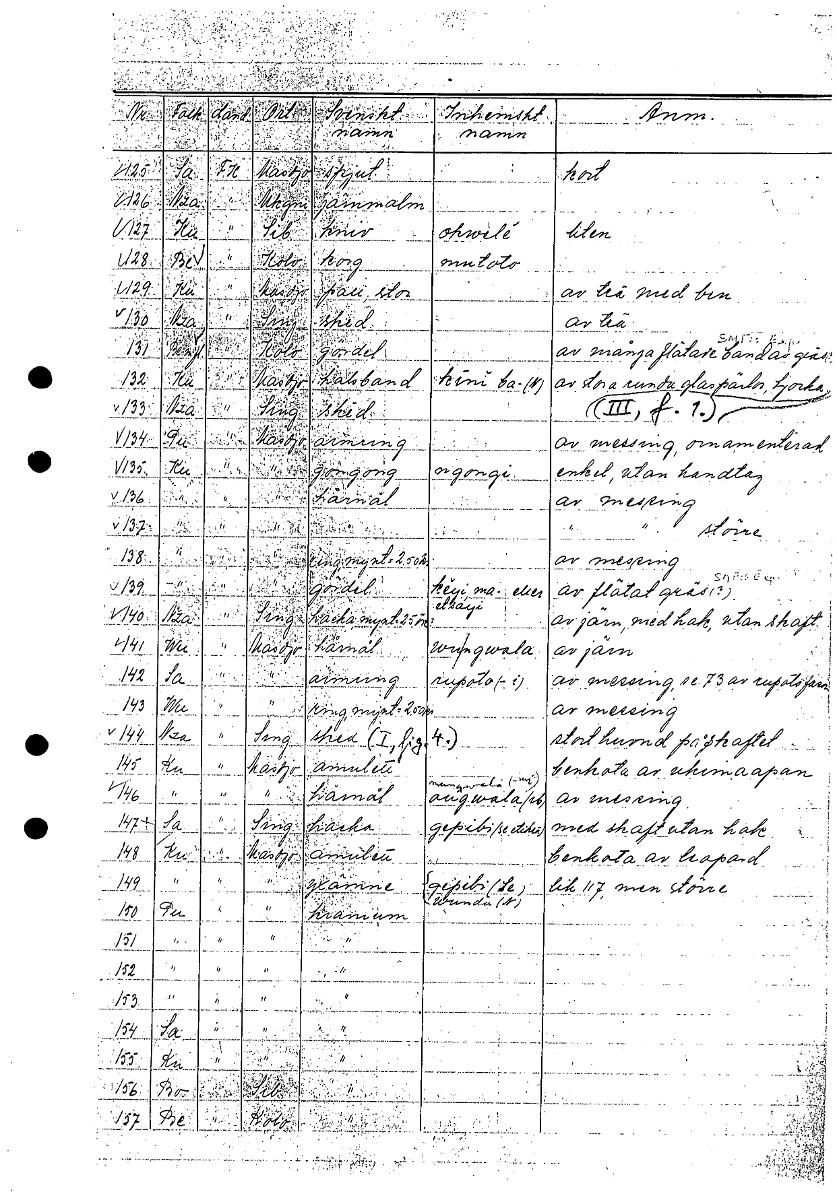 Nr. Folk Land Ort Svenskt namn Inhemskt namn Anm.
√125 Sa F.K Masojo spjut kort
√126 Nza " järnmalm
√127 Ku " Sib kniv okwelé liten
√128 Be √ " Kolo korg mutoto
√129 Ku " Masojo stor av trä med ben
√130 Nza " Sing sked av trä
131 " Kolo gördel av många flätade band av gräs
132 Ku " Masojo halsband kini ba-(N) av stora runda glaspärlor, tjocka
√133 Nza " Sing sked (III, f. 1.)
√134 Pu " Masojo armring av messing, ornamenterad
√135 Ku " " gonggong ngongi enkel, utan handtag
√136 " " " hårnål av messing
√137 " " " " " " större
138 " " " ring, mynt = 2,50 av messing
√139 " " " gördel këyi, ma- eller av flätat gräs (?)
√140 Nza " Sing hacka mynt = 25 av järn, med hak, utan skaft
√141 Wu " Masojo hårnål wungwala av järn
142 Sa " " armring rupoto (-i) av messing, se 73 av rupoto
143 Wu " " ring, mynt = 2,50 av messing
√144 Nza " Sing sked (I, fig. 4.) stort huvud på skaftet
145 Ku " Masojo amulett benkota av
√146 " " " hårnål av messing
147+ Sa " Sing hacka gepibi med skaft utan hak
148 Ku " Masojo amulett benkota av leopard
149 " " " gepibi (Se) wundu (N) lik 117, men större
150 Pu " " kranium
151 " " " "
152 " " " "
153 " " " "
154 Sa " " "
155 Ku " " "
156 Bo " Sib "
157 Be " Kolo "